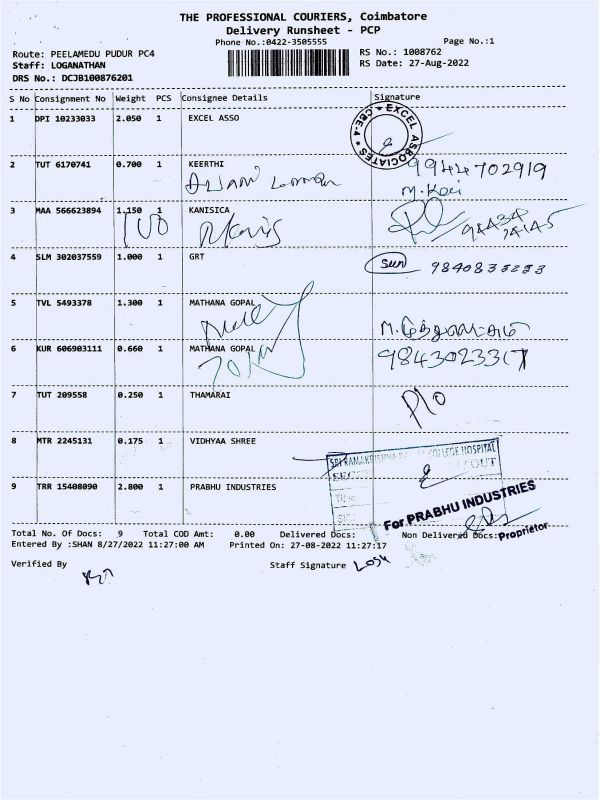 THE PROFESSIONAL COURIERS, Coimbatore
Delivery Runsheet - PCP
Phone No.:0422-3505555
Page No.:1
Route: PEELAMEDU PUDUR PC4
RS No.: 1008762
Staff: LOGANATHAN
RS Date: 27-Aug-2022
DRS No.: DCJB100876201
S No Consignment No Weight PCS Consignee Details Signature
1 DPI 10233033 2.050 1 EXCEL ASSO
EXCEL ASSOCIATES ★ CBE-4 ★
2 TUT 6170741 0.700 1 KEERTHI 9944702919
3 MAA 566623894 1.150 1 KANISICA
4 SLM 302037559 1.000 1 GRT
Sun
5 TVL 5493378 1.300 1 MATHANA GOPAL
6 KUR 606903111 0.660 1 MATHANA GOPAL
7 TUT 209558 0.250 1 THAMARAI
P/O
8 MTR 2245131 0.175 1 VIDHYAA SHREE
SRI RAMAKRISHNA COLLEGE HOSPITAL
OUT
9 TRR 15408090 2.800 1 PRABHU INDUSTRIES
For PRABHU INDUSTRIES
Proprietor
Total No. Of Docs: 9 Total COD Amt: 0.00 Delivered Docs: Non Delivered Docs:
Entered By :SHAN 8/27/2022 11:27:00 AM Printed On: 27-08-2022 11:27:17
Verified By Staff Signature